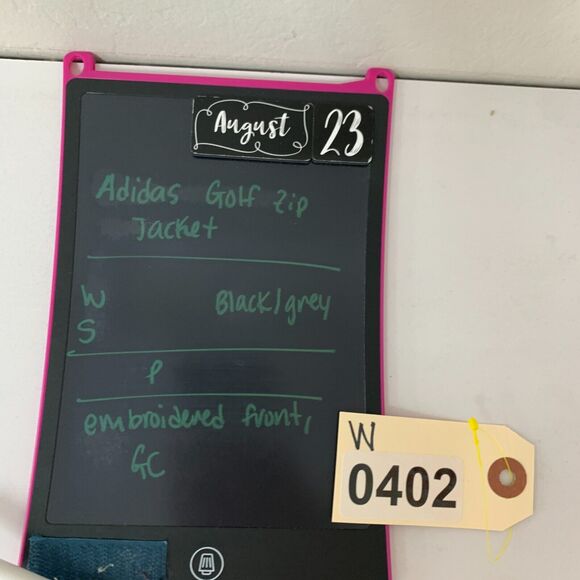 August 23
Adidas Golf Zip
Jacket
W Black/grey
S
P
embroidered front,
GC
W
0402